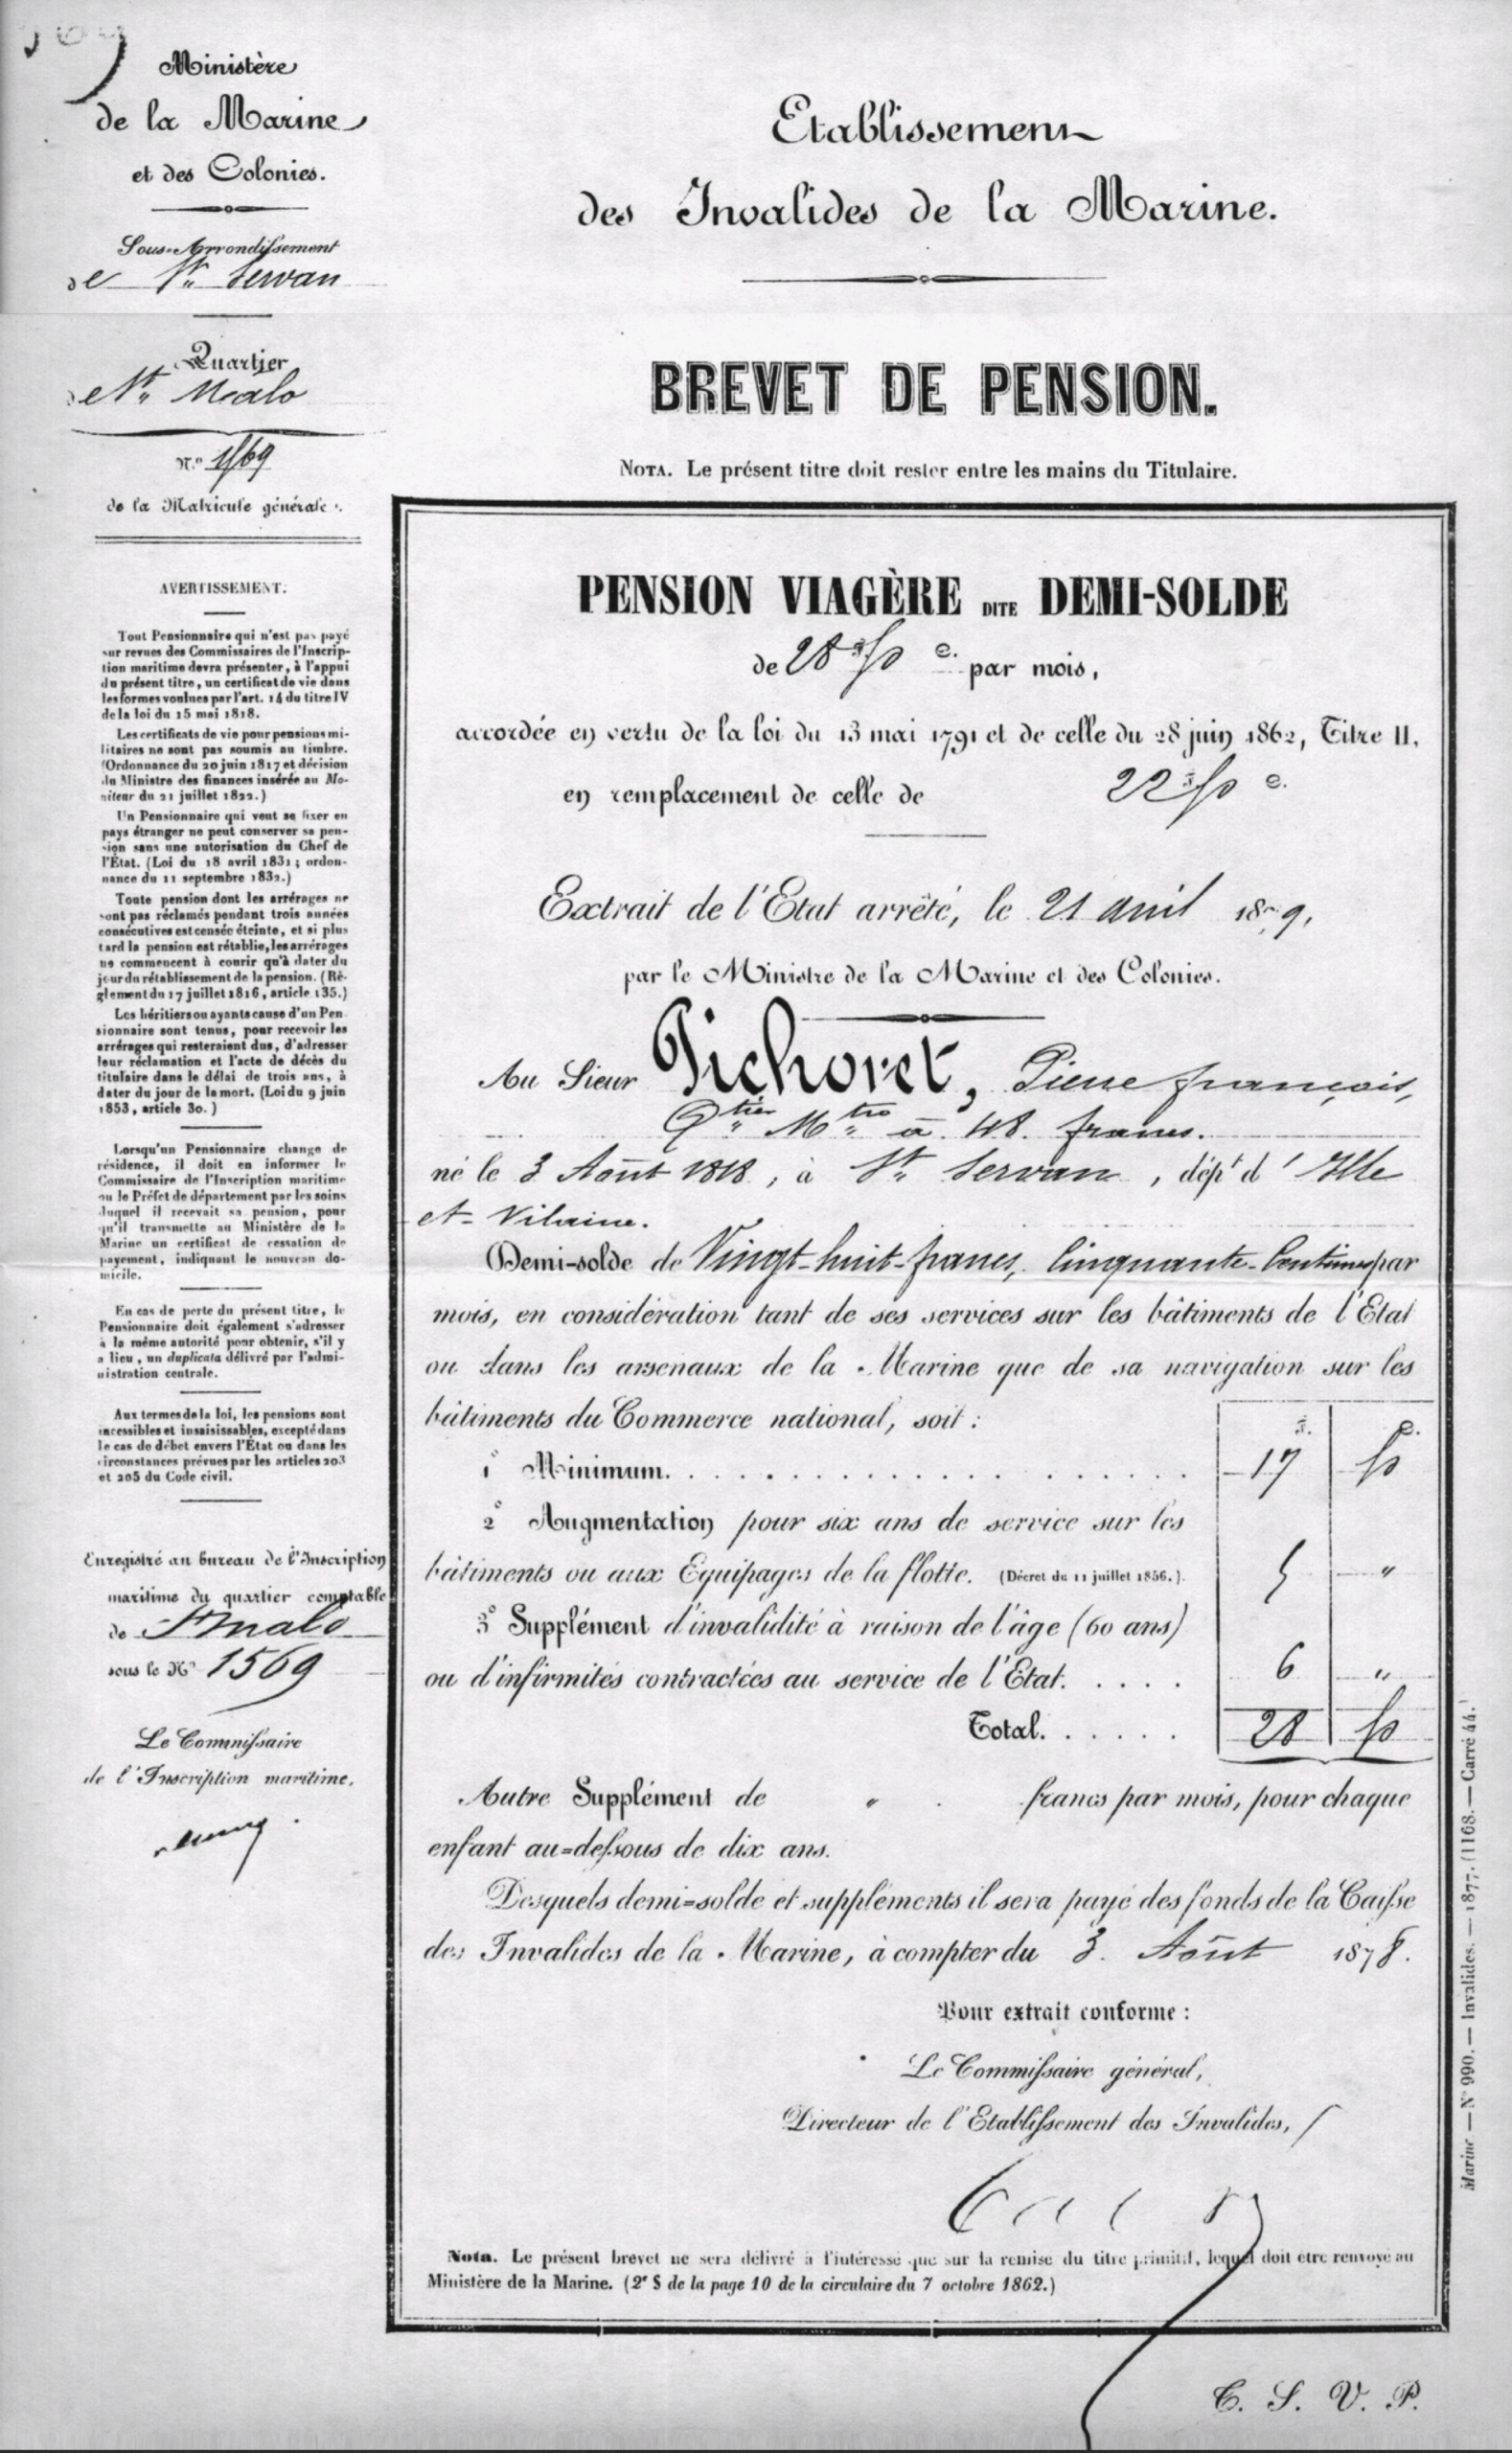 Ministère
de la Marine
et des Colonies.
Sous-Arrondissement
de St Servan
Quartier
de St Malo
N.º 1569
de la Matricule générale.
AVERTISSEMENT.
Tout Pensionnaire qui n'est pas payé
sur revues des Commissaires de l'Inscrip-
tion maritime devra présenter, à l'appui
du présent titre, un certificat de vie dans
les formes voulues par l'art. 14 du titre IV
de la loi du 15 mai 1818.
Les certificats de vie pour pensions mi-
litaires ne sont pas soumis au timbre.
(Ordonnance du 20 juin 1817 et décision
du Ministre des finances insérée au Mo-
niteur du 21 juillet 1822.)
Un Pensionnaire qui veut se fixer en
pays étranger ne peut conserver sa pen-
sion sans une autorisation du Chef de
l'État. (Loi du 18 avril 1831; ordon-
nance du 11 septembre 1832.)
Toute pension dont les arrérages ne
sont pas réclamés pendant trois années
consécutives est censée éteinte, et si plus
tard la pension est rétablie, les arrérages
ne commencent à courir qu'à dater du
jour du rétablissement de la pension. (Rè-
glement du 17 juillet 1816, article 135.)
Les héritiers ou ayants cause d'un Pen-
sionnaire sont tenus, pour recevoir les
arrérages qui resteraient dus, d'adresser
leur réclamation et l'acte de décès du
titulaire dans le délai de trois ans, à
dater du jour de la mort. (Loi du 9 juin
1853, article 30.)
Lorsqu'un Pensionnaire change de
résidence, il doit en informer le
Commissaire de l'Inscription maritime
ou le Préfet de département par les soins
duquel il recevait sa pension, pour
qu'il transmette au Ministère de la
Marine un certificat de cessation de
payement, indiquant le nouveau do-
micile.
En cas de perte du présent titre, le
Pensionnaire doit également s'adresser
à la même autorité pour obtenir, s'il y
a lieu, un duplicata délivré par l'admi-
nistration centrale.
Aux termes de la loi, les pensions sont
incessibles et insaisissables, excepté dans
le cas de débet envers l'État ou dans les
circonstances prévues par les articles 203
et 205 du Code civil.
Enregistré au bureau de l'Inscription
maritime du quartier comptable
de St Malo
sous le Nº 1569
Le Commissaire
de l'Inscription maritime,
Etablissement
des Invalides de la Marine.
BREVET DE PENSION.
NOTA. Le présent titre doit rester entre les mains du Titulaire.
PENSION VIAGÈRE DITE DEMI-SOLDE
de 28 f 50 c. par mois,
accordée en vertu de la loi du 13 mai 1791 et de celle du 28 juin 1862, Titre II,
en remplacement de celle de 22 f 50 c.
Extrait de l'Etat arrêté, le 21 avril 1879,
par le Ministre de la Marine et des Colonies.
Au Sieur Pichoret, Pierre françois,
Qtier Mtre à 48 francs.
né le 3 Août 1818, à St Servan, dépt d'Ille
et Vilaine.
Demi-solde de Vingt-huit-francs, Cinquante-Centimes par
mois, en considération tant de ses services sur les bâtiments de l'Etat
ou dans les arsenaux de la Marine que de sa navigation sur les
bâtiments du Commerce national, soit :
f. c.
1º Minimum. . . . . . . . . . . . . . . 17 50
2º Augmentation pour six ans de service sur les
bâtiments ou aux Equipages de la flotte. (Décret du 11 juillet 1856.). 5 "
3º Supplément d'invalidité à raison de l'âge (60 ans)
ou d'infirmités contractées au service de l'Etat. . . . . 6 "
Total. . . . . . 28 50
Autre Supplément de " francs par mois, pour chaque
enfant au-dessous de dix ans.
Desquels demi-solde et suppléments il sera payé des fonds de la Caisse
des Invalides de la Marine, à compter du 3 Août 1878.
Pour extrait conforme :
Le Commissaire général,
Directeur de l'Etablissement des Invalides,
Nota. Le présent brevet ne sera délivré à l'intéressé que sur la remise du titre primitif, lequel doit être renvoyé au
Ministère de la Marine. (2e § de la page 10 de la circulaire du 7 octobre 1862.)
T. S. V. P.
Marine — Nº 990. — Invalides. — 1877. (1168. — Carré 44.)